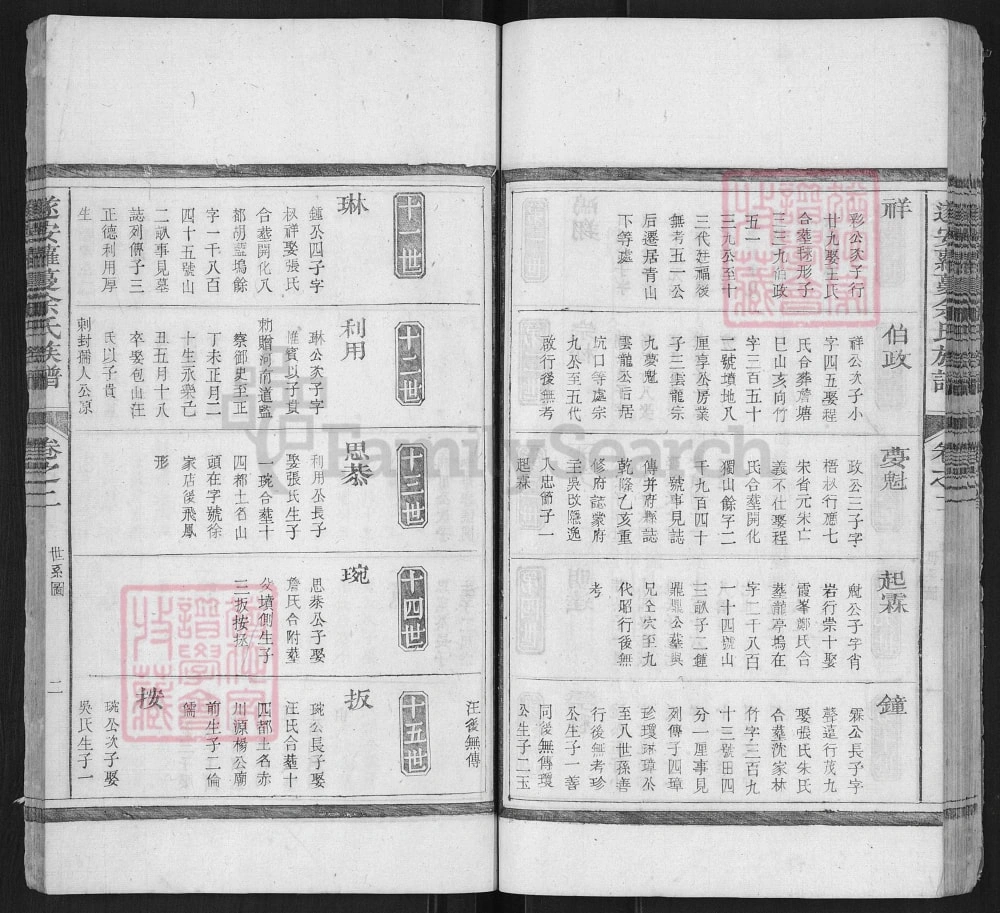 祥
彩公次子行
廿九娶王氏
合葬毬形子
三三九伯政
五一
三九公至十
三代廷福後
無考五一公
后遷居青山
下等處
伯政
祥公次子小
字四五娶程
氏合葬詹塘
巳山亥向竹
字三百五十
二號墳地八
厘享公房業
子三雲龍宗
九夢魁
雲龍公后居
坑口等處宗
九公至五代
啟行後無考
夢魁
政公三子字
梧枝行應七
宋省元宋亡
義不仕娶程
氏合葬開化
獨山餘字二
千九百四十
號事見誌
傳并府縣誌
乾隆乙亥重
修府誌蒙府
主吳改隱逸
入忠節子一
起霖
起霖
魁公子字肖
岩行崇十娶
霞峯鄭氏合
葬龍亭塢在
字二千八百
一十四號山
三畝子二鍾
鼎鼎公葬與
兄仝穴至九
代昭行後無
考
鐘
霖公長子字
聲遠行茂九
娶張氏朱氏
合葬沈家林
竹字三百九
十三號田四
分一厘事見
列傳子四璋
珍瓊琳璋公
至八世孫善
行後無考珍
公生子一善
同後無傳瓊
公生子二玉
汪後無傳
十一世
十二世
十三世
十四世
十五世
琳
鍾公四子字
叔祥娶張氏
合葬開化八
都胡藍塢餘
字一千八百
四十五號山
二畝事見墓
誌列傳子三
正德利用厚
生
利用
琳公次子字
惟賓以子貴
勅贈河南道監
察御史至正
丁未正月二
十生永樂己
丑五月十八
卒娶包山汪
氏以子貴
勅封孺人公凉
思恭
利用公長子
娶張氏生子
一琬合葬十
四都土名山
頭在字號徐
家店後飛鳳
形
琬
思恭公子娶
詹氏合附葬
父墳側生子
三扳按拯
扳
琬公長子娶
汪氏合葬十
四都土名赤
川源楊公廟
前生子二倫
儒
按
琬公次子娶
吳氏生子一
遂安蘿蔓余氏族譜
卷之二
世系圖
二
FamilySearch